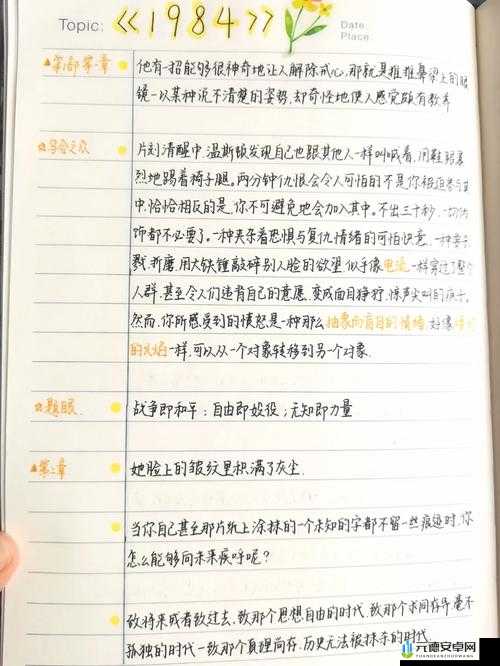 Topic: 《《1984》》 Date: Place:
第一部第一章
他有一招能够很神奇地让人解除戒心，那就是推推鼻梁上的眼
镜一以某种说不清楚的姿势，却奇怪地使人感觉颇有教养
片刻清醒中，温斯顿发现自己也跟其他人一样叫喊着，用鞋跟暴
烈地踢着椅子腿。两分钟仇恨会令人可怕的不是你被迫参与其
中，恰恰相反的是，你不可避免地会加入其中。不出三十秒，一切伪
饰都不必要了。一种夹杂着恐惧与复仇情绪的可怕识意，一种去
戮、折磨、用大铁锤敲碎别人脸的欲望，似乎像电流一样穿过了整个
人群，甚至令人们违背自己的意愿，变成面目狰狞，惊声尖叫的疯子。
然而，你所感受到的愤怒是一种那么抽象而盲目的情绪，好像
的火焰一样，可以从一个对象转移到另一个对象。
☆题眼
战争即和平；自由即奴役；无知即力量
第二章
她脸上的皱纹里积满了灰尘
当你自己甚至那片纸上涂抹的一个未知的字都不留一丝痕迹时，你
怎么能够向未来疾呼呢？
致将来或者致过去，致那个思想自由的时代，致那个求同存异毫不
孤独的时代一致那个真理尚存，历史无法被抹杀的时代
元德安卓网